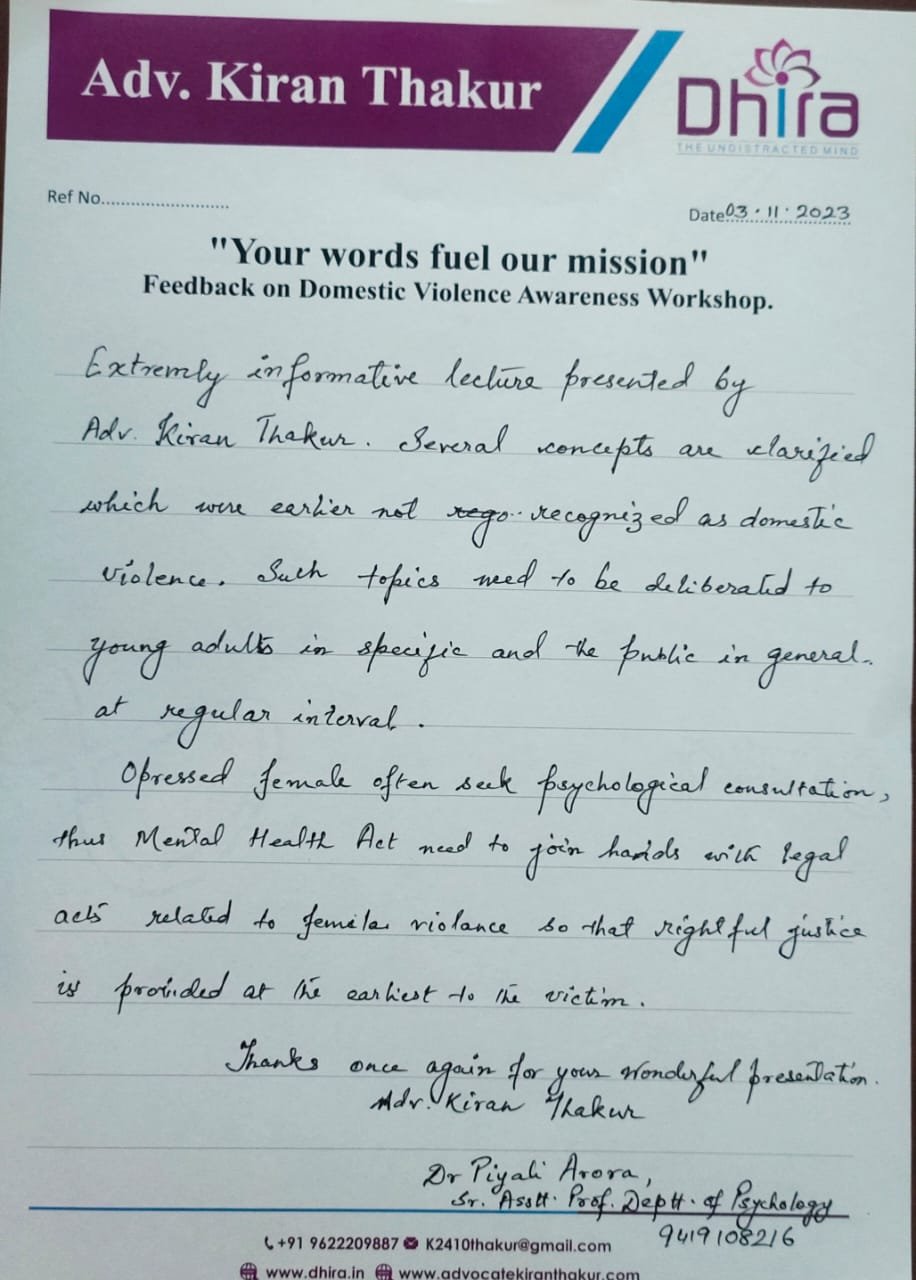 Adv. Kiran Thakur
Dhira
THE UNDISTRACTED MIND
Ref No..........................
Date 03.11.2023
"Your words fuel our mission"
Feedback on Domestic Violence Awareness Workshop.
Extremly informative lecture presented by
Adv. Kiran Thakur. Several concepts are clarified
which were earlier not rego.. recognized as domestic
violence. Such topics need to be deliberated to
young adults in specific and the public in general.
at regular interval.
Opressed female often seek psychological consultation,
thus Mental Health Act need to join hands with legal
acts related to female violance so that rightful justice
is provided at the earliest to the victim.
Thanks once again for your wonderful presentation.
Adv. Kiran Thakur
Dr Piyali Arora,
Sr. Asstt. Prof. Deptt. of Psychology
9419108216
+91 9622209887 K2410thakur@gmail.com
www.dhira.in www.advocatekiranthakur.com